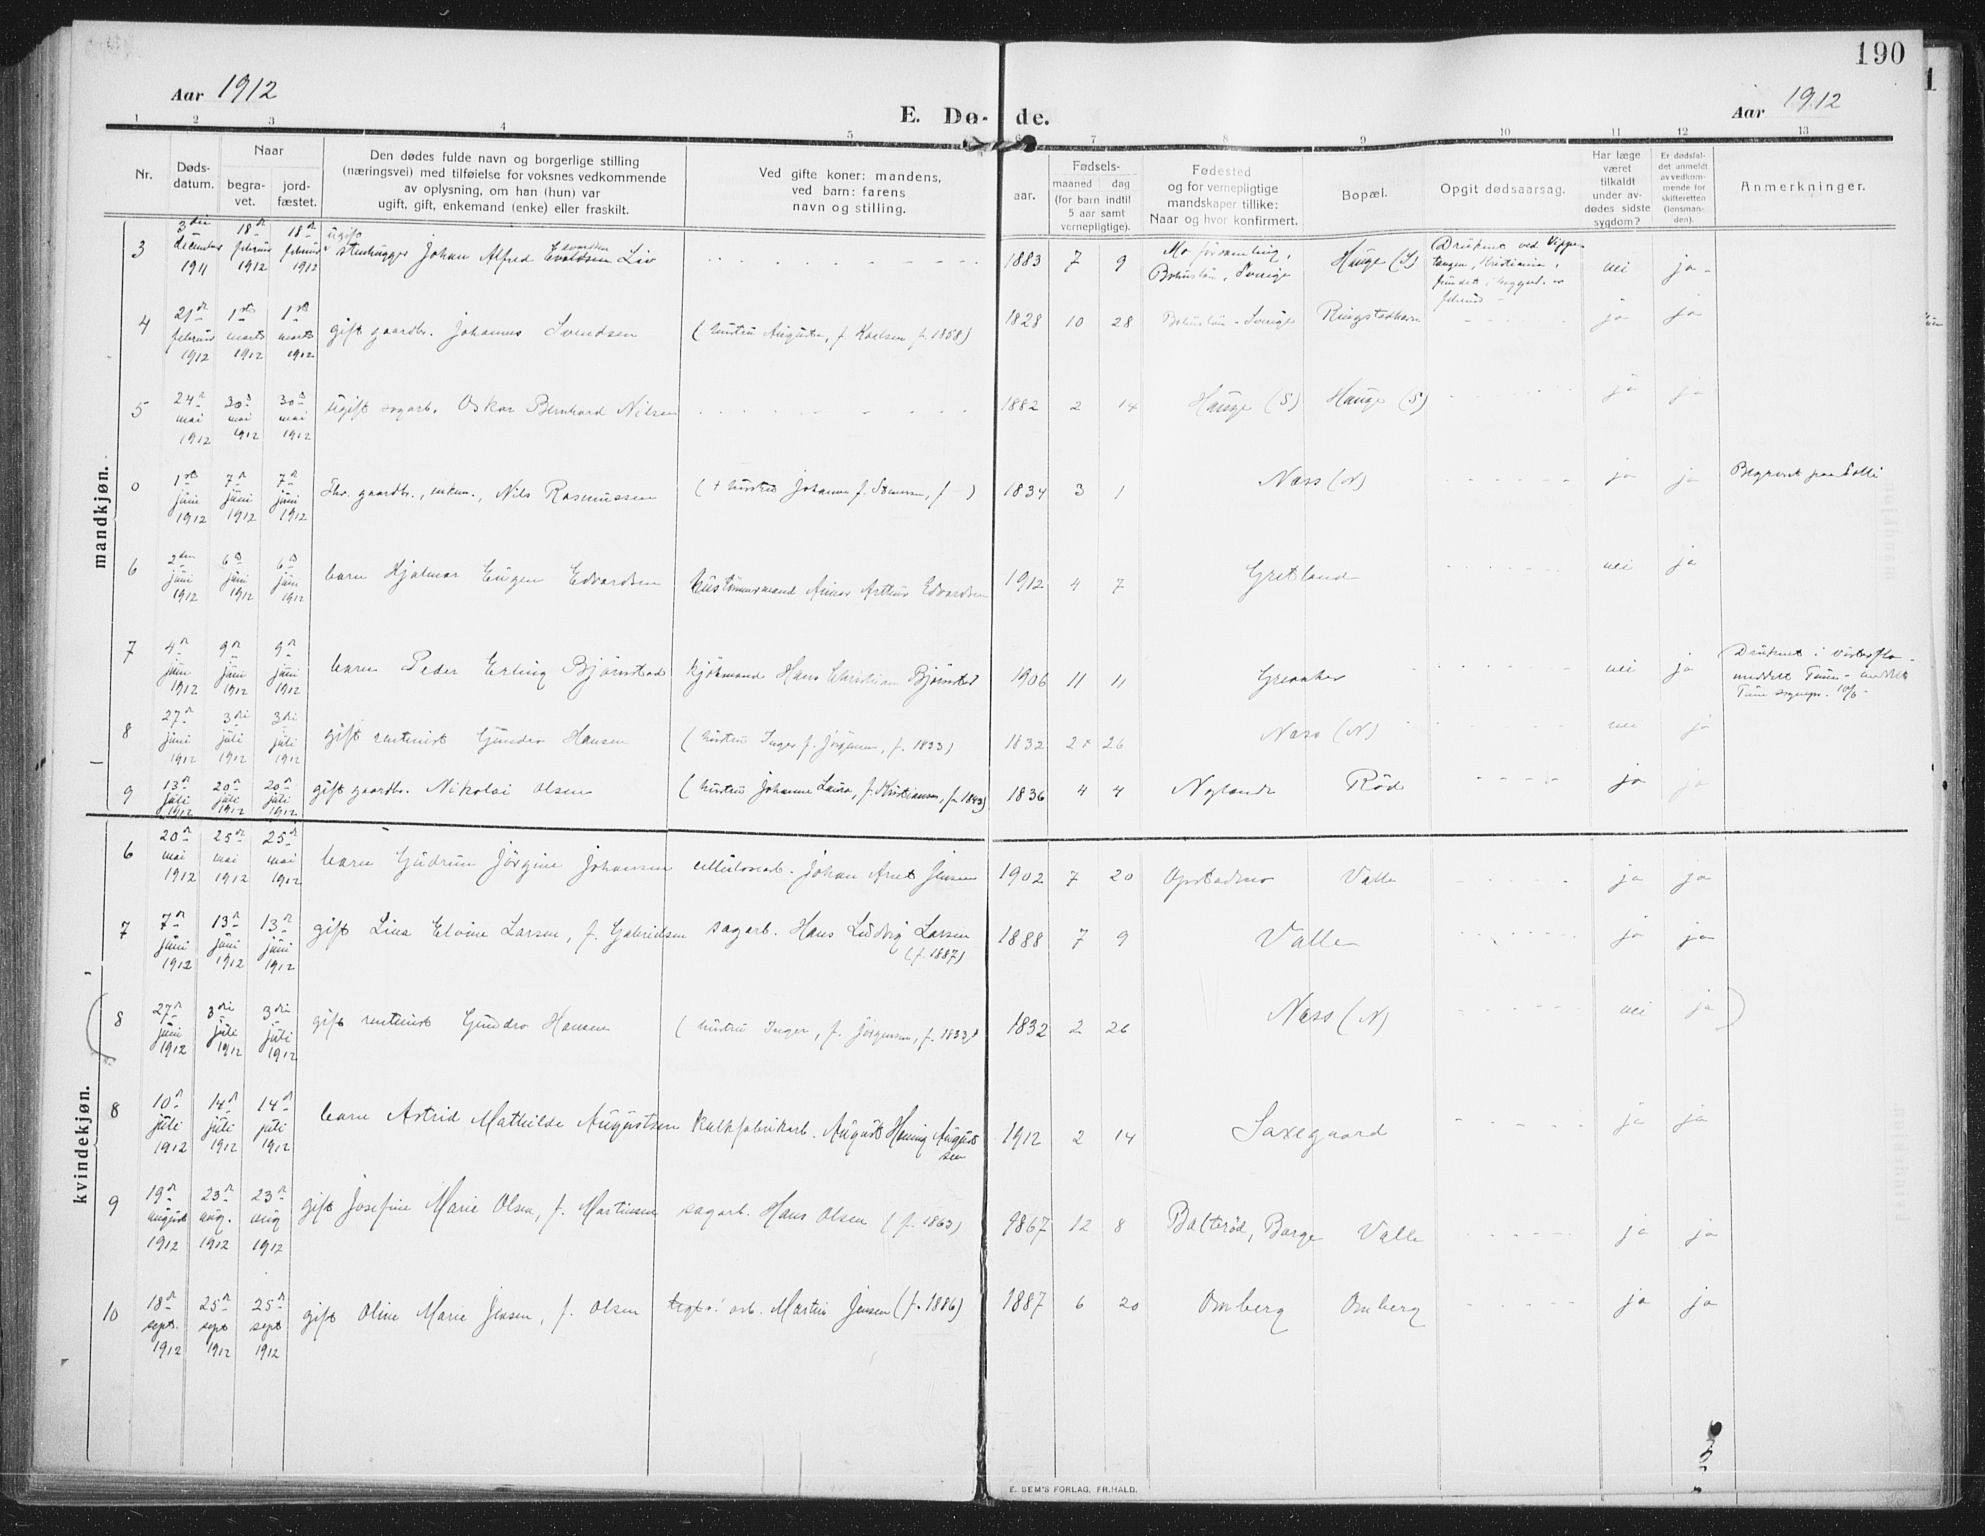 190
Aar 1912
E. Dø- de.
Aar 1912
1 2 3 4 5 6 7 8 9 10 11 12 13
Nr.
Døds-
datum.
Naar
begra-
vet.
jord-
fæstet.
Den dødes fulde navn og borgerlige stilling
(næringsvei) med tilføielse for voksnes vedkommende
av oplysning, om han (hun) var
ugift, gift, enkemand (enke) eller fraskilt.
Ved gifte koner: mandens,
ved barn: farens
navn og stilling.
Fødsels-
aar.
maaned dag
(for barn indtil
5 aar samt
vernepligtige).
Fødested
og for vernepligtige
mandskaper tillike:
Naar og hvor konfirmert.
Bopæl.
Opgit dødsaarsag.
Har læge
været
tilkaldt
under av-
dødes sidste
sygdom?
Er dødsfal-
det anmeldt
av vedkom-
mende for
skifteretten
(lensman-
den).
Anmerkninger.
mandkjøn.
3 3die december 1911 18de februar 1912 18de februar 1912 ugift stenhugger Johan Alfred Evaldsen Liv 1883 7 9 Mo forsamling, Bohuslän, Sverige Hauge (S) Druknet ved Vippetangen, Kristiania, fundet nei ja
4 21de februar 1912 1ste marts 1912 1ste marts 1912 gift gaardbr. Johannes Svendsen (hustru Augusta, f. Karlsen, f. 1858) 1828 10 28 Bohuslän - Sverige Ringstadhavn ja ja
5 24de mai 1912 30de mai 1912 30de mai 1912 ugift sagarb. Oskar Bernhard Nilsen 1882 2 14 Hauge (S) Hauge (S) ja ja
0 1ste juni 1912 7de juni 1912 7de juni 1912 Fhv. gaardbr., enkem., Nils Rasmussen († hustru Johanne f. f. -) 1834 3 1 Næss (N) ja ja Begravet paa
6 2den juni 1912 6te juni 1912 6te juni 1912 barn Hjalmar Eugen Edvardsen hustømmermand Arthur Edvardsen 1912 4 7 Gretland nei ja
7 4de juni 1912 9de juni 1912 9de juni 1912 barn Peder Erling Bjørnstad kjøbmand Hans Christian Bjørnstad 1906 11 11 Greaaker nei ja Druknet i meddelt Tune - Tune sognepr. 10/6 -
8 27de juni 1912 3die juli 1912 3die juli 1912 gift rentenist Gundro Hansen (hustru Inger f. Jørgensen, f. 1833) 1832 2 26 Næss (N) nei ja
9 13de juli 1912 20de juli 1912 20de juli 1912 gift gaardbr. Nikolai Olsen (hustru Johanne Laura, f. Kristiansen, f. 1843) 1836 4 4 Nylande Rød ja ja
kvindekjøn.
6 20de mai 1912 25de mai 1912 25de mai 1912 barn Gudrun Jørgine Johansen cellulosearb. Johan Arnt Jensen 1902 7 20 Opstadmo Valle ja ja
7 7de juni 1912 13de juni 1912 13de juni 1912 gift Lina Elvine Larsen, f. Gabrielsen sagarb. Hans Ludvig Larsen (f. 1887) 1888 7 9 Valle ja ja
(8 27de juni 1912 3die juli 1912 3die juli 1912 gift rentenist Gundro Hansen (hustru Inger, f. Jørgensen, f. 1833) 1832 2 26 Næss (N) nei ja)
8 10de juli 1912 14de juli 1912 14de juli 1912 barn Astrid Mathilde Augustsen kalkfabrikarb. August Augustsen 1912 2 14 Saxegaard ja ja
9 19de august 1912 23de aug. 1912 23de aug 1912 gift Josefine Marie Olsen, f. Martinsen sagarb. Hans Olsen (f. 1863) 1867 12 8 Balterød, Borge Valle ja ja
10 18de sept. 1912 25de sept 1912 25de sept 1912 gift Oline Marie Jensen, f. Olsen arb. Martin Jensen (f. 1886) 1887 6 20 Omberg Omberg ja ja
E. SEM'S FORLAG, FR.HALD.